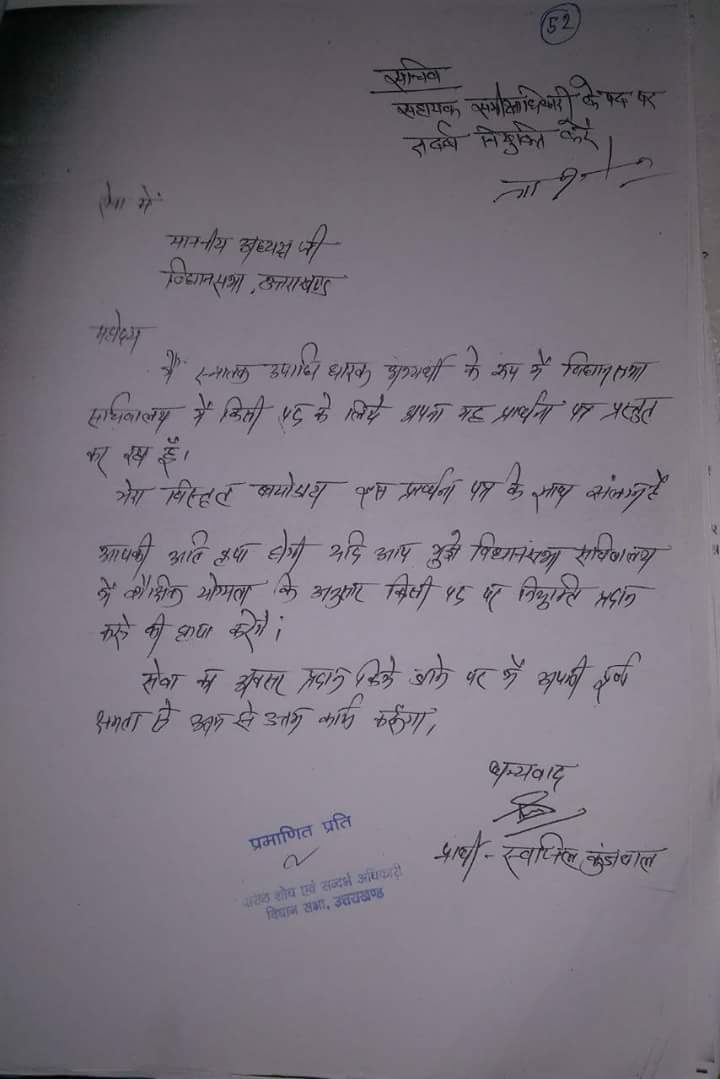 52
सचिव
सहायक समीक्षाधिकारी के पद पर
तदर्थ नियुक्ति करें।
सेवा में
माननीय अध्यक्ष जी
विधानसभा, उत्तराखण्ड
महोदय
मैं स्नातक उपाधि धारक अभ्यर्थी के रूप में विधानसभा
सचिवालय में किसी पद के लिये अपना यह प्रार्थना पत्र प्रस्तुत
कर रहा हूँ।
मेरा विस्तृत बायोडाटा इस प्रार्थना पत्र के साथ संलग्न है
आपकी अति कृपा होगी यदि आप मुझे विधानसभा सचिवालय
में शैक्षिक योग्यता के अनुसार किसी पद पर नियुक्ति प्रदान
करने की कृपा करेंगे।
सेवा का अवसर प्रदान किये जाने पर मैं अपनी पूर्ण
क्षमता से उत्तम कार्य करूंगा,
धन्यवाद
प्रार्थी - स्वप्निल कुंडवाल
प्रमाणित प्रति
शोध एवं सन्दर्भ अधिकारी
विधान सभा, उत्तराखण्ड